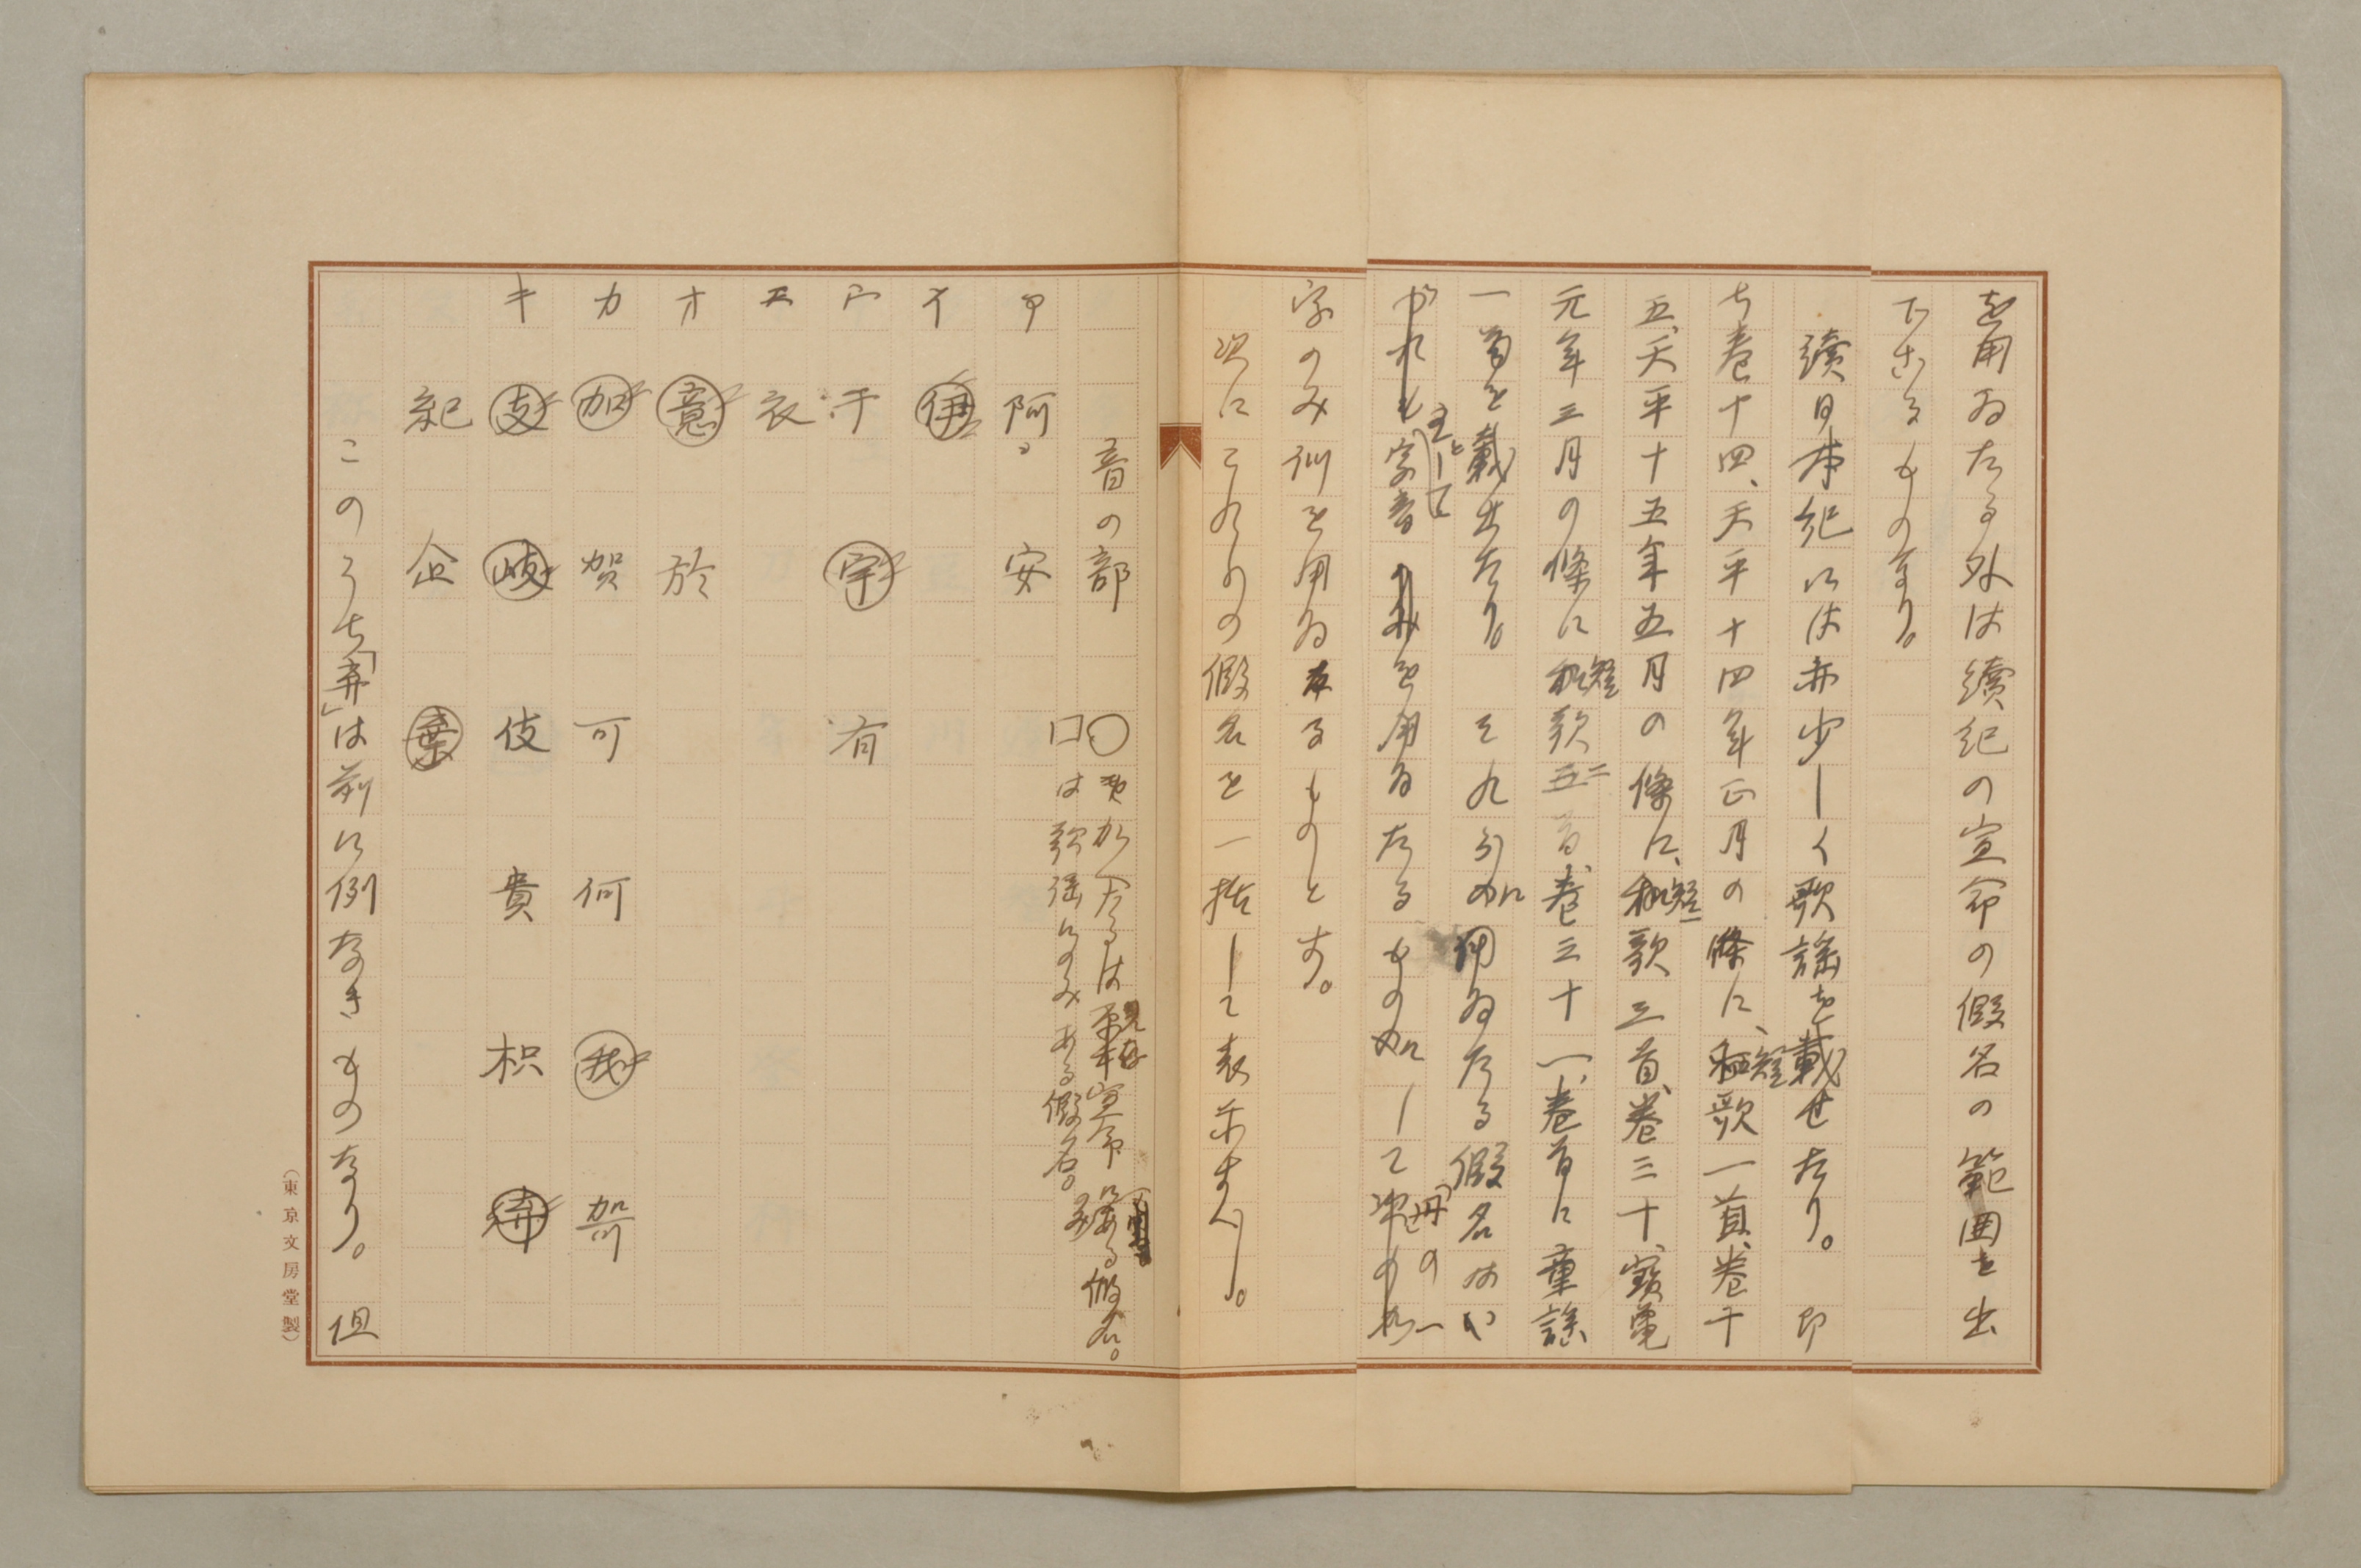 を用ゐたる外は續紀の宣命の假名の範囲を出
でざるものなり。
續日本紀には亦少しく歌謡を載せたり。即
ち巻十四、天平十四年正月の條に、短歌一首、巻十
五、天平十五年五月の條に、短歌三首、巻三十、寳亀
元年三月の條に短歌二首、巻三十一、巻首に童謡
一首を載せたり。それらに用ゐたる假名はい
づれも主として字音を用ゐたるものにして「丹」の一
字のみ訓を用ゐたるものとす。
次にこれらの假名を一括して表示すべし。
音の部
○をかへたるは現存宣命にのみある假名。
□は歌謡にのみある假名。
ア 阿 安
イ 伊
ウ 于 宇 有
エ 衣
オ 意 於
カ 加 賀 可 何 我 哿
キ 支 岐 伎 貴 枳 棄
紀 企 棄
このうち「棄」は前に例なきものなり。但
(東京文房堂製)